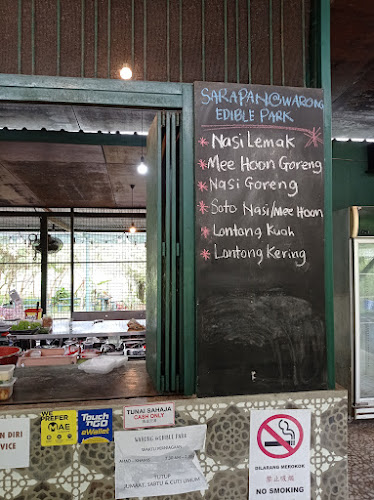 SARAPAN@WARONG
EDIBLE PARK
* Nasi Lemak
* Mee Hoon Goreng
* Nasi Goreng
* Soto Nasi/Mee Hoon
* Lontong Kuah
* Lontong Kering
WE
PREFER
MAE
Touch
'n GO
eWallet
TUNAI SAHAJA
CASH ONLY
DIRI
VICE
WARONG EDIBLE PARK
TUTUP
JUMAAT, SABTU & CUTI UMUM
DILARANG MEROKOK
禁止吸烟
NO SMOKING